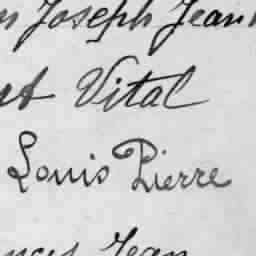 Joseph Jean
Vital
Louis Pierre
Jean